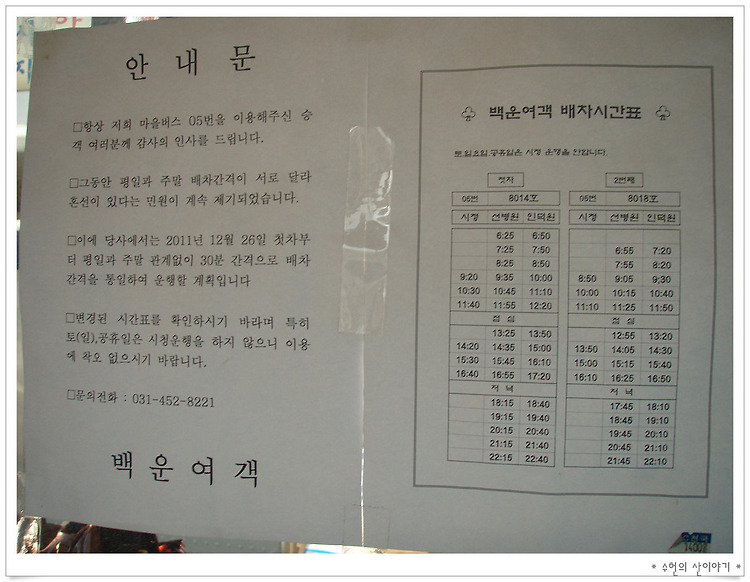 안 내 문
□항상 저희 마을버스 05번을 이용해주신 승
객 여러분께 감사의 인사를 드립니다.
□그동안 평일과 주말 배차간격이 서로 달라
혼선이 있다는 민원이 계속 제기되었습니다.
□이에 당사에서는 2011년 12월 26일 첫차부
터 평일과 주말 관계없이 30분 간격으로 배차
간격을 통일하여 운행할 계획입니다
□변경된 시간표를 확인하시기 바라며 특히
토(일),공휴일은 시청운행을 하지 않으니 이용
에 착오 없으시기 바랍니다.
□문의전화 : 031-452-8221
백 운 여 객
♧ 백운여객 배차시간표 ♧
토,일요일,공휴일은 시청 운행을 안합니다.
첫차
05번 8014호
시청 선병원 인덕원
6:25 6:50
7:25 7:50
8:25 8:50
9:20 9:35 10:00
10:30 10:45 11:10
11:40 11:55 12:20
점 심
13:25 13:50
14:20 14:35 15:00
15:30 15:45 16:10
16:40 16:55 17:20
저 녁
18:15 18:40
19:15 19:40
20:15 20:40
21:15 21:40
22:15 22:40
2번째
05번 8018호
시청 선병원 인덕원
6:55 7:20
7:55 8:20
8:50 9:05 9:30
10:00 10:15 10:40
11:10 11:25 11:50
점 심
12:55 13:20
13:50 14:05 14:30
15:00 15:15 15:40
16:10 16:25 16:50
저 녁
17:45 18:10
18:45 19:10
19:45 20:10
20:45 21:10
21:45 22:10
* 수헌의 산이야기 *